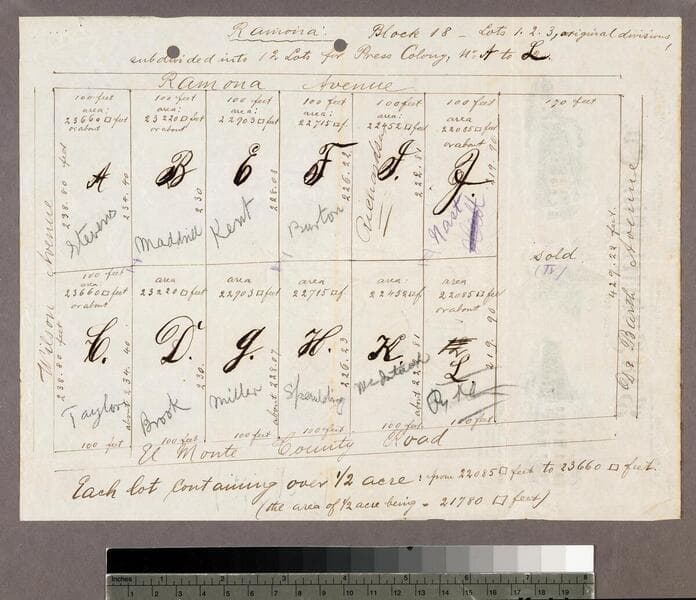 Ramona: Block 18 - Lots 1. 2. 3, original divisions,
subdivided into 12 Lots for Press Colony, A to L.
Ramona Avenue
100 feet 100 feet 100 feet 100 feet 100 feet 100 feet 170 feet
area: 23660 □ feet or about
area: 23220 □ feet or about
area: 22903 □ feet
area: 22715 □ f.
area: 22452 □ feet
area 22085 □ feet or about
A B E F I. J.
238.80 feet 234.40 230 228.08 226.22 222.81 219.90
Stevens Kent Burton Richardson
Wilson Avenue
sold
429.22 feet.
De Barth Avenue
100 feet
area: 23660 □ feet or about
area 23220 □ feet
area 22903 □ feet
area 22715 □ f
area: 22452 □ f
area 22085 □ feet or about
C. D. G. H. K. L
238.80 feet about 234.40 230 about 228.07 226.23 about 222.81 219.90
Taylor Brook Miller Spaulding
100 feet 100 feet 100 feet 100 feet 100 feet 100 feet
El Monte County Road
Each lot containing over 1/2 acre: from 22085 □ feet to 23660 □ feet.
(the area of 1/2 acre being - 21780 □ feet)
Inches 1 2 3 4 5 6 7 8